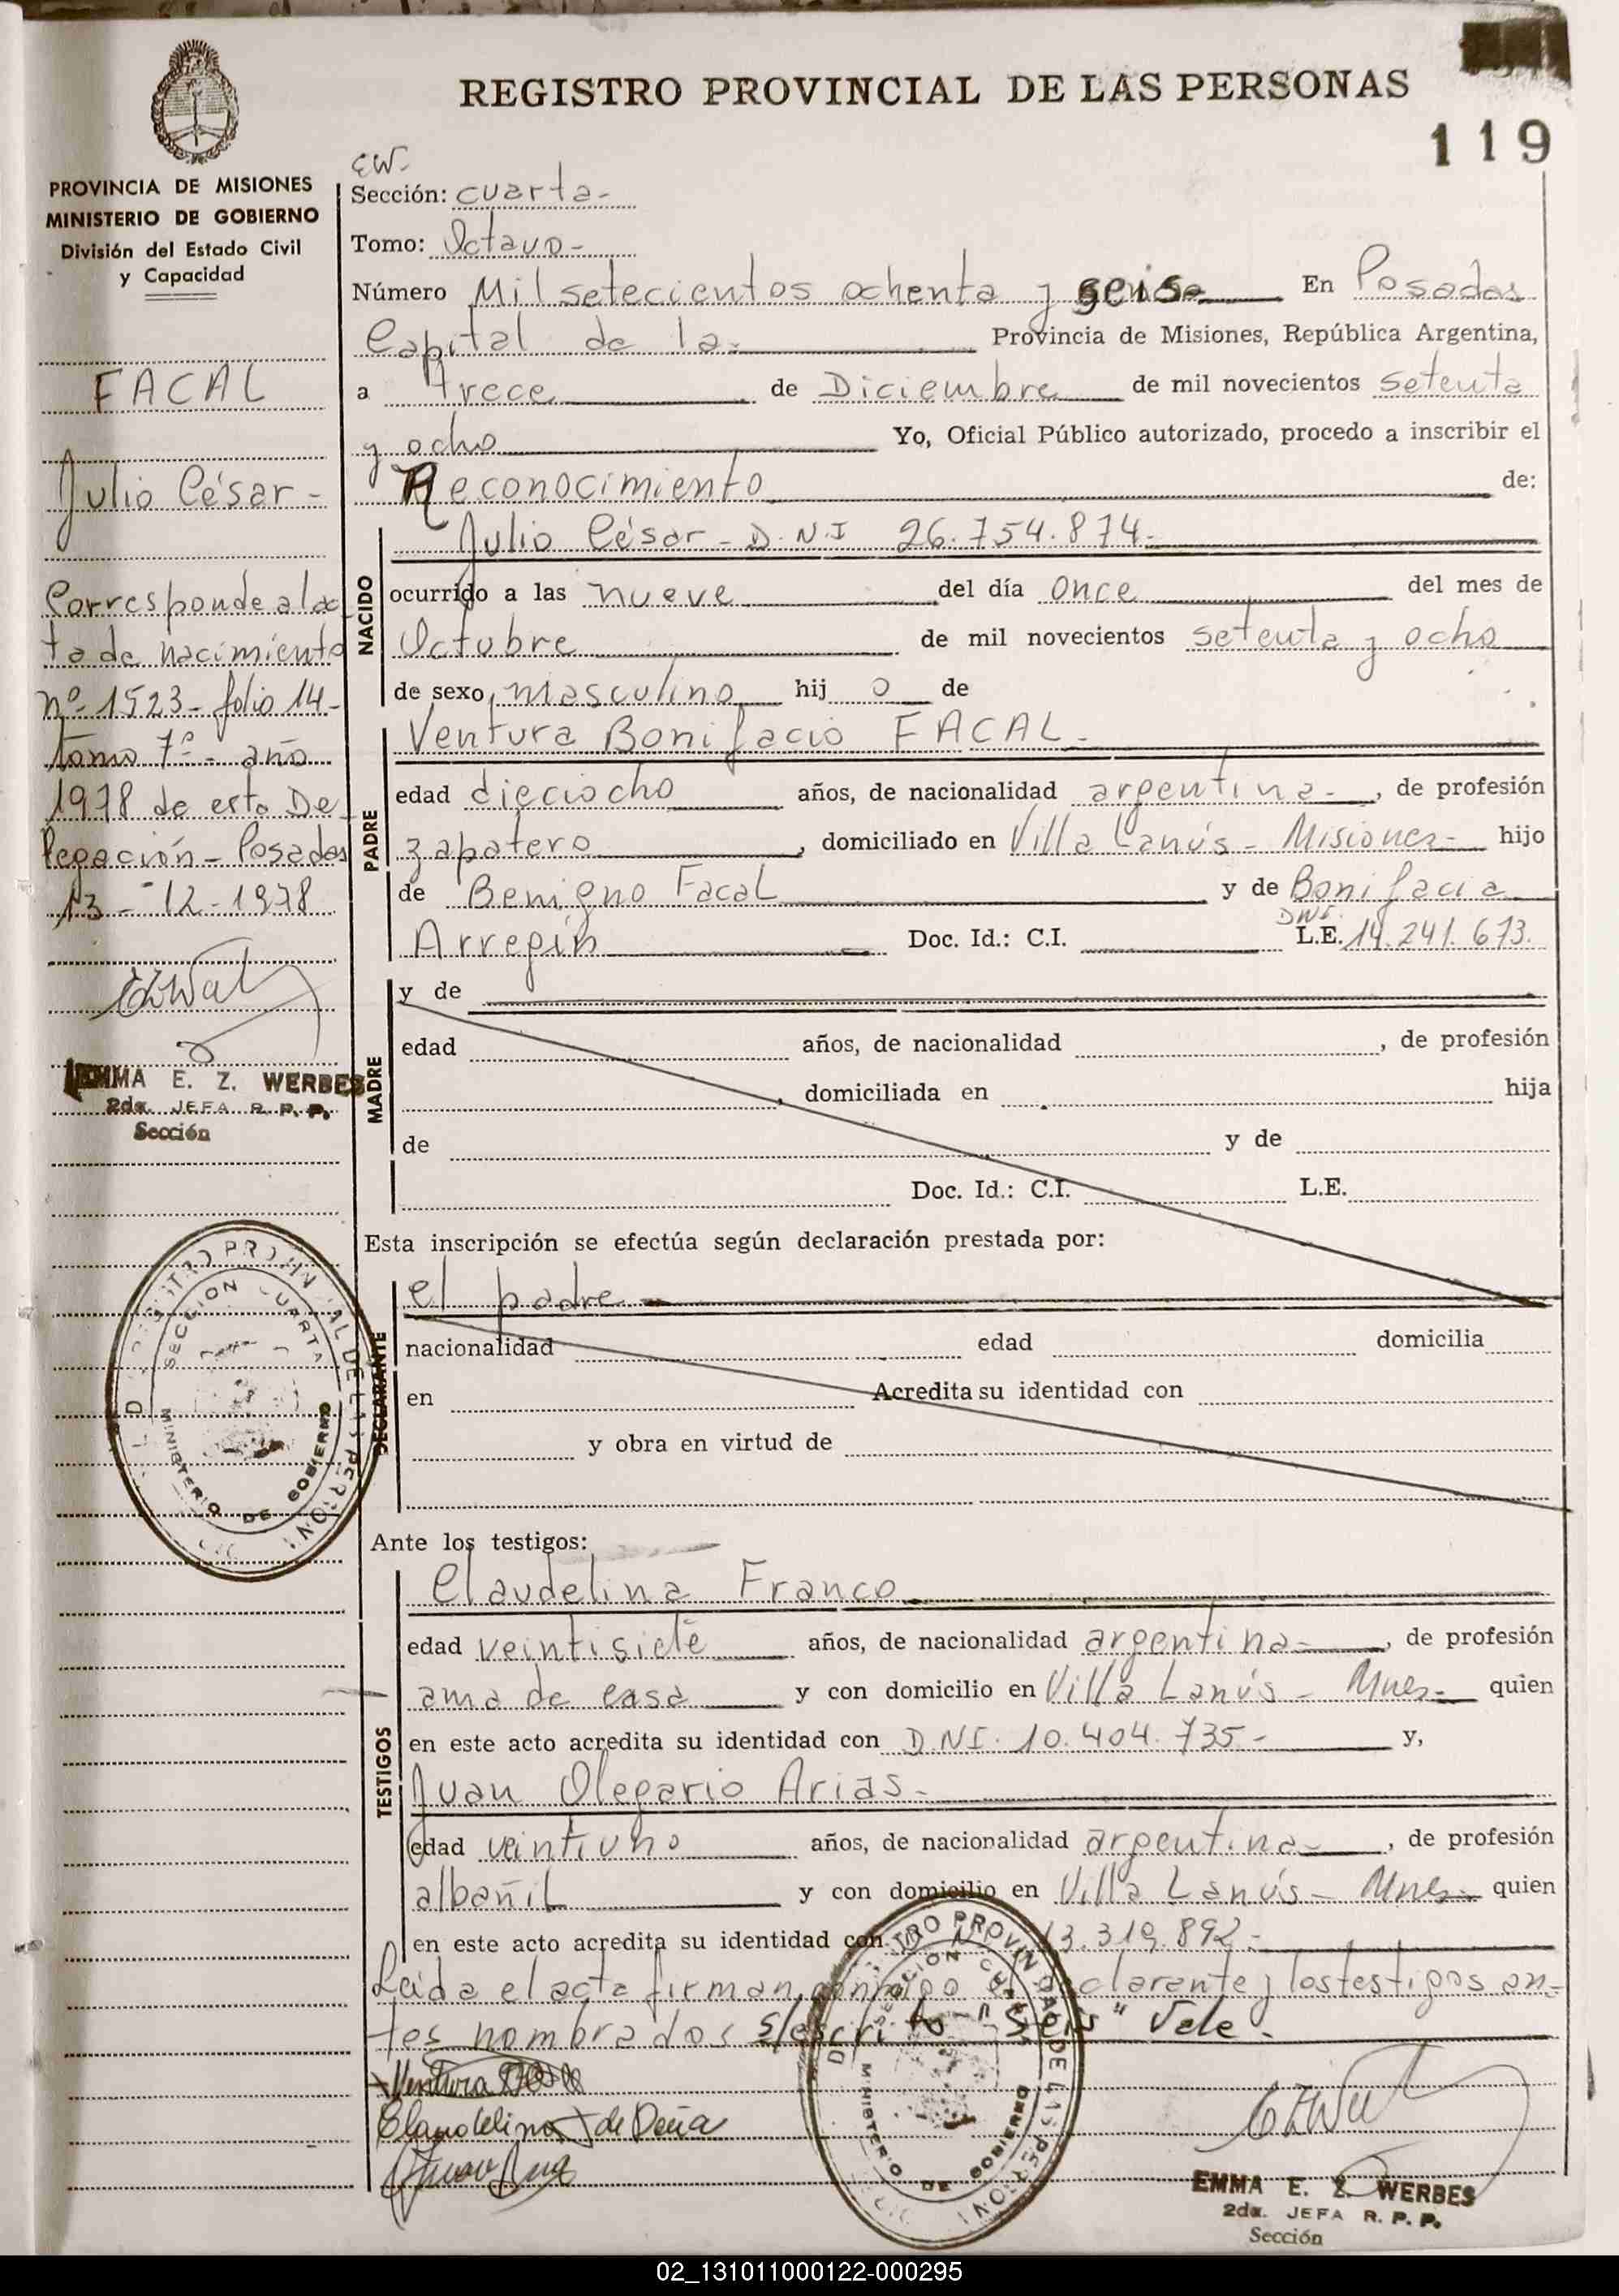 REGISTRO PROVINCIAL DE LAS PERSONAS
119
PROVINCIA DE MISIONES
MINISTERIO DE GOBIERNO
División del Estado Civil
y Capacidad
FACAL
Julio César -
Corresponde al ac
ta de nacimiento
nº 1523 - folio 14 -
tomo 7º - año
1978 de esta De
legación - Posadas
13 - 12 - 1978
EMMA E. Z. WERBES
2da. JEFA R. P. P.
Sección
EW.
Sección: cuarta -
Tomo: Octavo -
Número Mil setecientos ochenta y seis En Posadas
Capital de la - Provincia de Misiones, República Argentina,
a trece de Diciembre de mil novecientos setenta
y ocho Yo, Oficial Público autorizado, procedo a inscribir el
Reconocimiento de:
NACIDO
Julio César - D.N.I 26.754.874 -
ocurrido a las nueve del día once del mes de
Octubre de mil novecientos setenta y ocho
de sexo masculino hij o de
PADRE
Ventura Bonifacio FACAL -
edad dieciocho años, de nacionalidad argentina -, de profesión
zapatero, domiciliado en Villa Lanús - Misiones - hijo
de Benigno Facal y de Bonifacia
DNI.
Arregin Doc. Id.: C.I. L.E. 14.241.673.
MADRE
y de
edad años, de nacionalidad , de profesión
, domiciliada en hija
de y de
Doc. Id.: C.I. L.E.
Esta inscripción se efectúa según declaración prestada por:
DECLARANTE
el padre
nacionalidad edad domicilia
en Acredita su identidad con
y obra en virtud de
Ante los testigos:
TESTIGOS
Claudelina Franco
edad veintisiete años, de nacionalidad argentina -, de profesión
ama de casa y con domicilio en Villa Lanús - Mnes - quien
en este acto acredita su identidad con D.NI. 10.404.735 - y,
Juan Olegario Arias -
edad veintiuno años, de nacionalidad argentina -, de profesión
albañil y con domicilio en Villa Lanús - Mnes - quien
en este acto acredita su identidad con 13.319.892 -
Leida el acta firman conmigo el declarante y los testigos an-
tes nombrados s/escrito - "seis" Vale -
Ventura
Claudelina F de Peña
Juan
REGISTRO PROVINCIAL DE LAS PERSONAS
SECCION CUARTA
MINISTERIO DE GOBIERNO
EMMA E. Z. WERBES
2da. JEFA R. P. P.
Sección
02_131011000122-000295